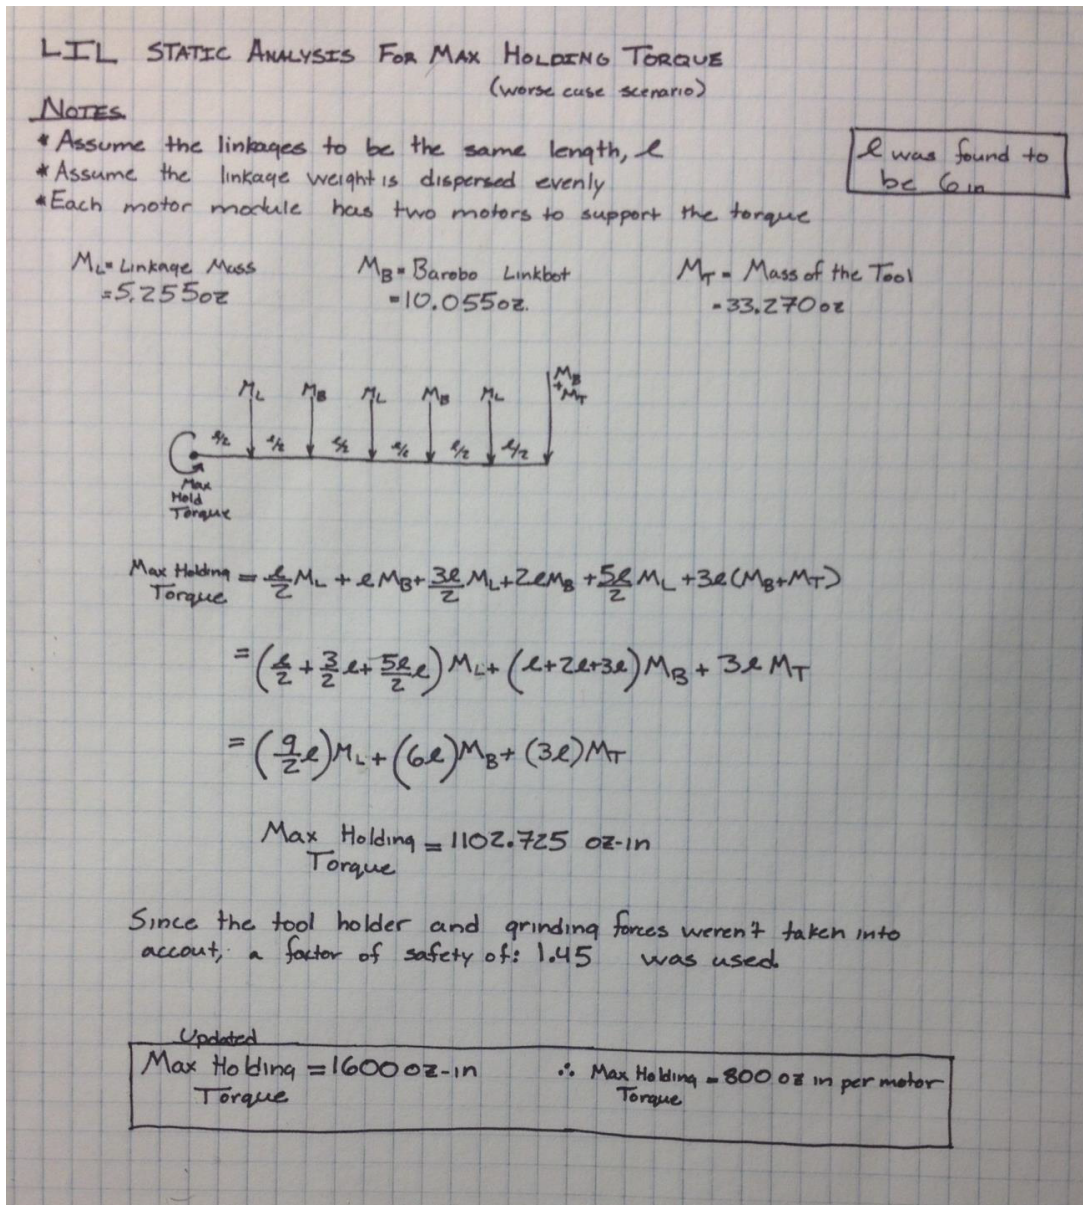 LIL STATIC ANALYSIS FOR MAX HOLDING TORQUE
(worse case scenario)
NOTES
* Assume the linkages to be the same length, l
* Assume the linkage weight is dispersed evenly
* Each motor module has two motors to support the torque
l was found to
be 6in
M_L = Linkage Mass
= 5.255oz
M_B = Barobo Linkbot
= 10.055oz.
M_T = Mass of the Tool
= 33.270 oz
M_L M_B M_L M_B M_L M_B + M_T
l/2 l/2 l/2 l/2 l/2 l/2
Max
Hold
Torque
Max Holding Torque = l/2 M_L + l M_B + 3l/2 M_L + 2l M_B + 5l/2 M_L + 3l(M_B+M_T)
= (l/2 + 3/2 l + 5l/2 l) M_L + (l+2l+3l) M_B + 3l M_T
= (9/2 l) M_L + (6l) M_B + (3l) M_T
Max Holding Torque = 1102.725 oz-in
Since the tool holder and grinding forces weren't taken into
accout, a factor of safety of: 1.45 was used
Updated
Max Holding Torque = 1600 oz-in
∴ Max Holding Torque = 800 oz in per motor